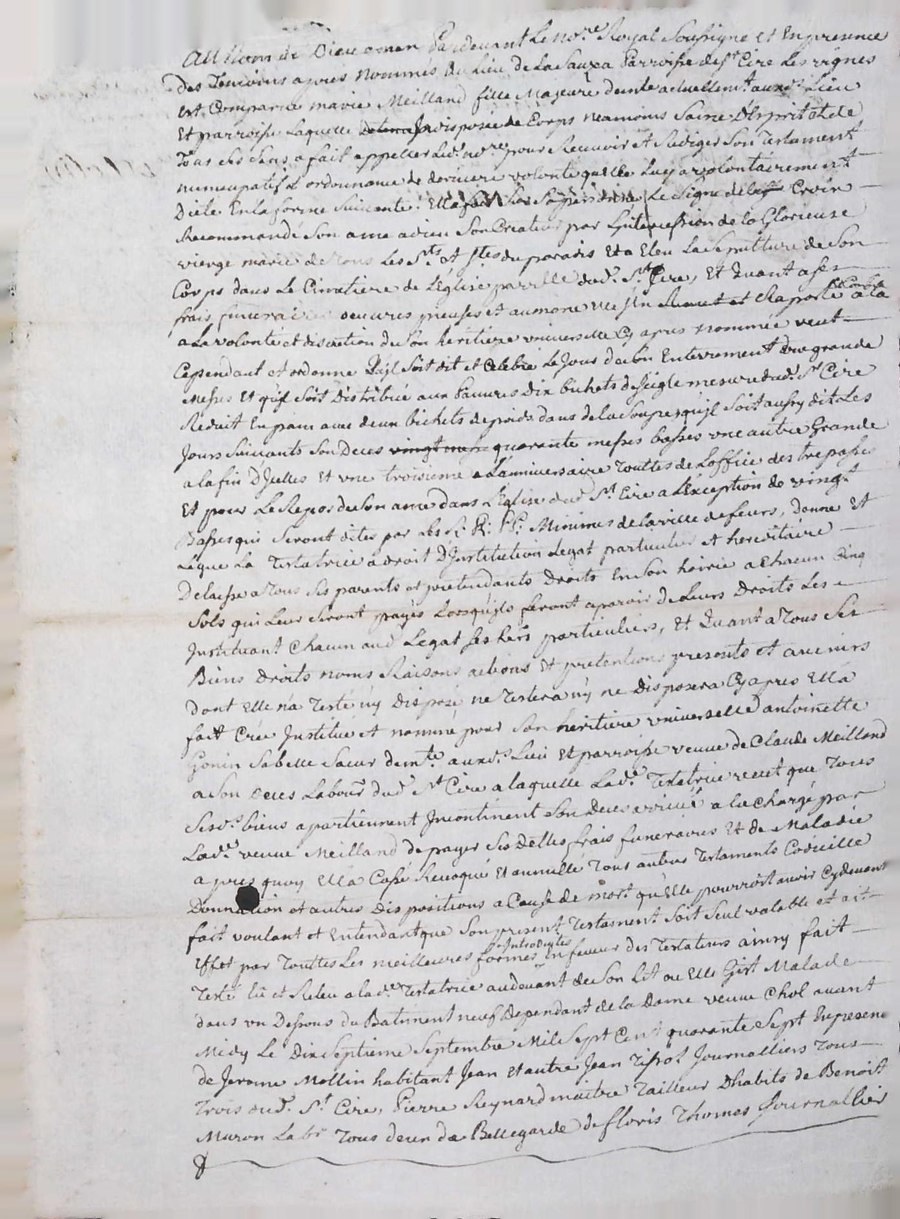 Au Nom de Dieu amen Pardevant Le No.re Royal Soussigne et En presence
Des Temoins apres Nommés Au Lieu de La Sauzea Parroisse de St Cire Les vignes
Est Comparue marie Meilland fille Majeure dem.te actuellem.t aud. Lieu
Et parroisse Laquelle Indisposée de Corps neamoins Saine D'Esprit et de
Tous ses Sens, a fait appeller Led. no.re pour Recevoir et Rediger Son Testament
nuncupatif et ordonnance de derniere volonté quelle Luy a volontairement
Dicté En la forme Suivante. Ella fait Le Signe de la Croix
Recommandé Son ame a dieu Son Createur par Lintercession de la Glorieuse
vierge marie de tous Les Sts et Stes du paradis Et a Eleu La Sepulture de Son
Corps dans Le Cimetiere de L'Eglise parr.lle dud. St Cire, Et Quant a ses
frais funeraires oeuvres pieuses et aumone a la
a La volonté et discretion de Son heritiere universelle Cy apres nommée veut
Cependant et ordonne Qu'il Soit dit et Celebré Le Jour de son Enterrement une grande
Messe Et qu'il Soit Distribué aux Pauvres Dix bichets de Seigle mesure dud. St Cire
Reduit En pain avec deux bichets de poids dans de la Soupe qu'il Soit aussy dit Les
Jours Suivants Son Deces vingt quarante messes basses une autre Grande
a la fin D'Icelles Et une troisieme a L'anniversaire Touttes de Loffice des trepassés
Et pour Le Repos de Son ame dans L'Eglise dud. St Cire a L'Exception de vingt
Basses qui Seront dites par Les R. P. Minimes de la ville de feurs, donne Et
Legue La Testatrice a droit D'Institution Legat particulier et hereditaire
Delaisse a Tous Ses parents et pretendants Droits En Son hoirie a Chacun Cinq
Sols qui Leur Seront payés Lorsqu'ils feront aparoir de Leurs Droits Les
Instituant Chacun aud. Legat Ses hers particuliers, Et Quant a Tous Ses
Biens Droits noms Raisons actions Et pretentions presents et avenirs
Dont Elle na Testé n'y Disposé ne Testera n'y ne Disposera Cy apres Ella
fait Créé Institué et nommé pour Son heritiere universelle antoinette
Gonin Sa belle Soeur dem.te auxd. Lieu Et parroisse veuve de Claude Meilland
a Son deces Labour. dud. St Cire a laquelle Lad. Testatrice veut que Tous
Sesd. biens apartiennent Incontinent Son Deces arrivé a la Charge par
Lad. veuve Meilland de payer Ses Dettes frais funeraires Et de Maladie
apres quoy Ella Cassé Revoqué Et annullé Tous autres Testaments Codicille
Donnation et autres Dispositions a Cause de mort qu'Elle pourroit avoir Cydevant
fait voulant et Entendant que Son present Testament Soit Seul valable et ait
Effet par Touttes Les meilleures formes Introduites En faveur des Testateurs ainsy fait
Testé lû et Releu a lad. Testatrice au devant de Son Lit ou Elle Gist Malade
dans un Dessous du Batiment neuf dependant de la Dame veuve Chol avant
Midy Le Dix Septieme Septembre Mil Sept Cent quarante Sept En presence
de Jerome Mollin habitant Jean Et autre Jean Journalliers Tous
Trois dud. St Cire, Pierre Reynard maitre Tailleur D'habits de Benoit
Muron Labr. Tous deux de Bellegarde de floris Thomas Journallier